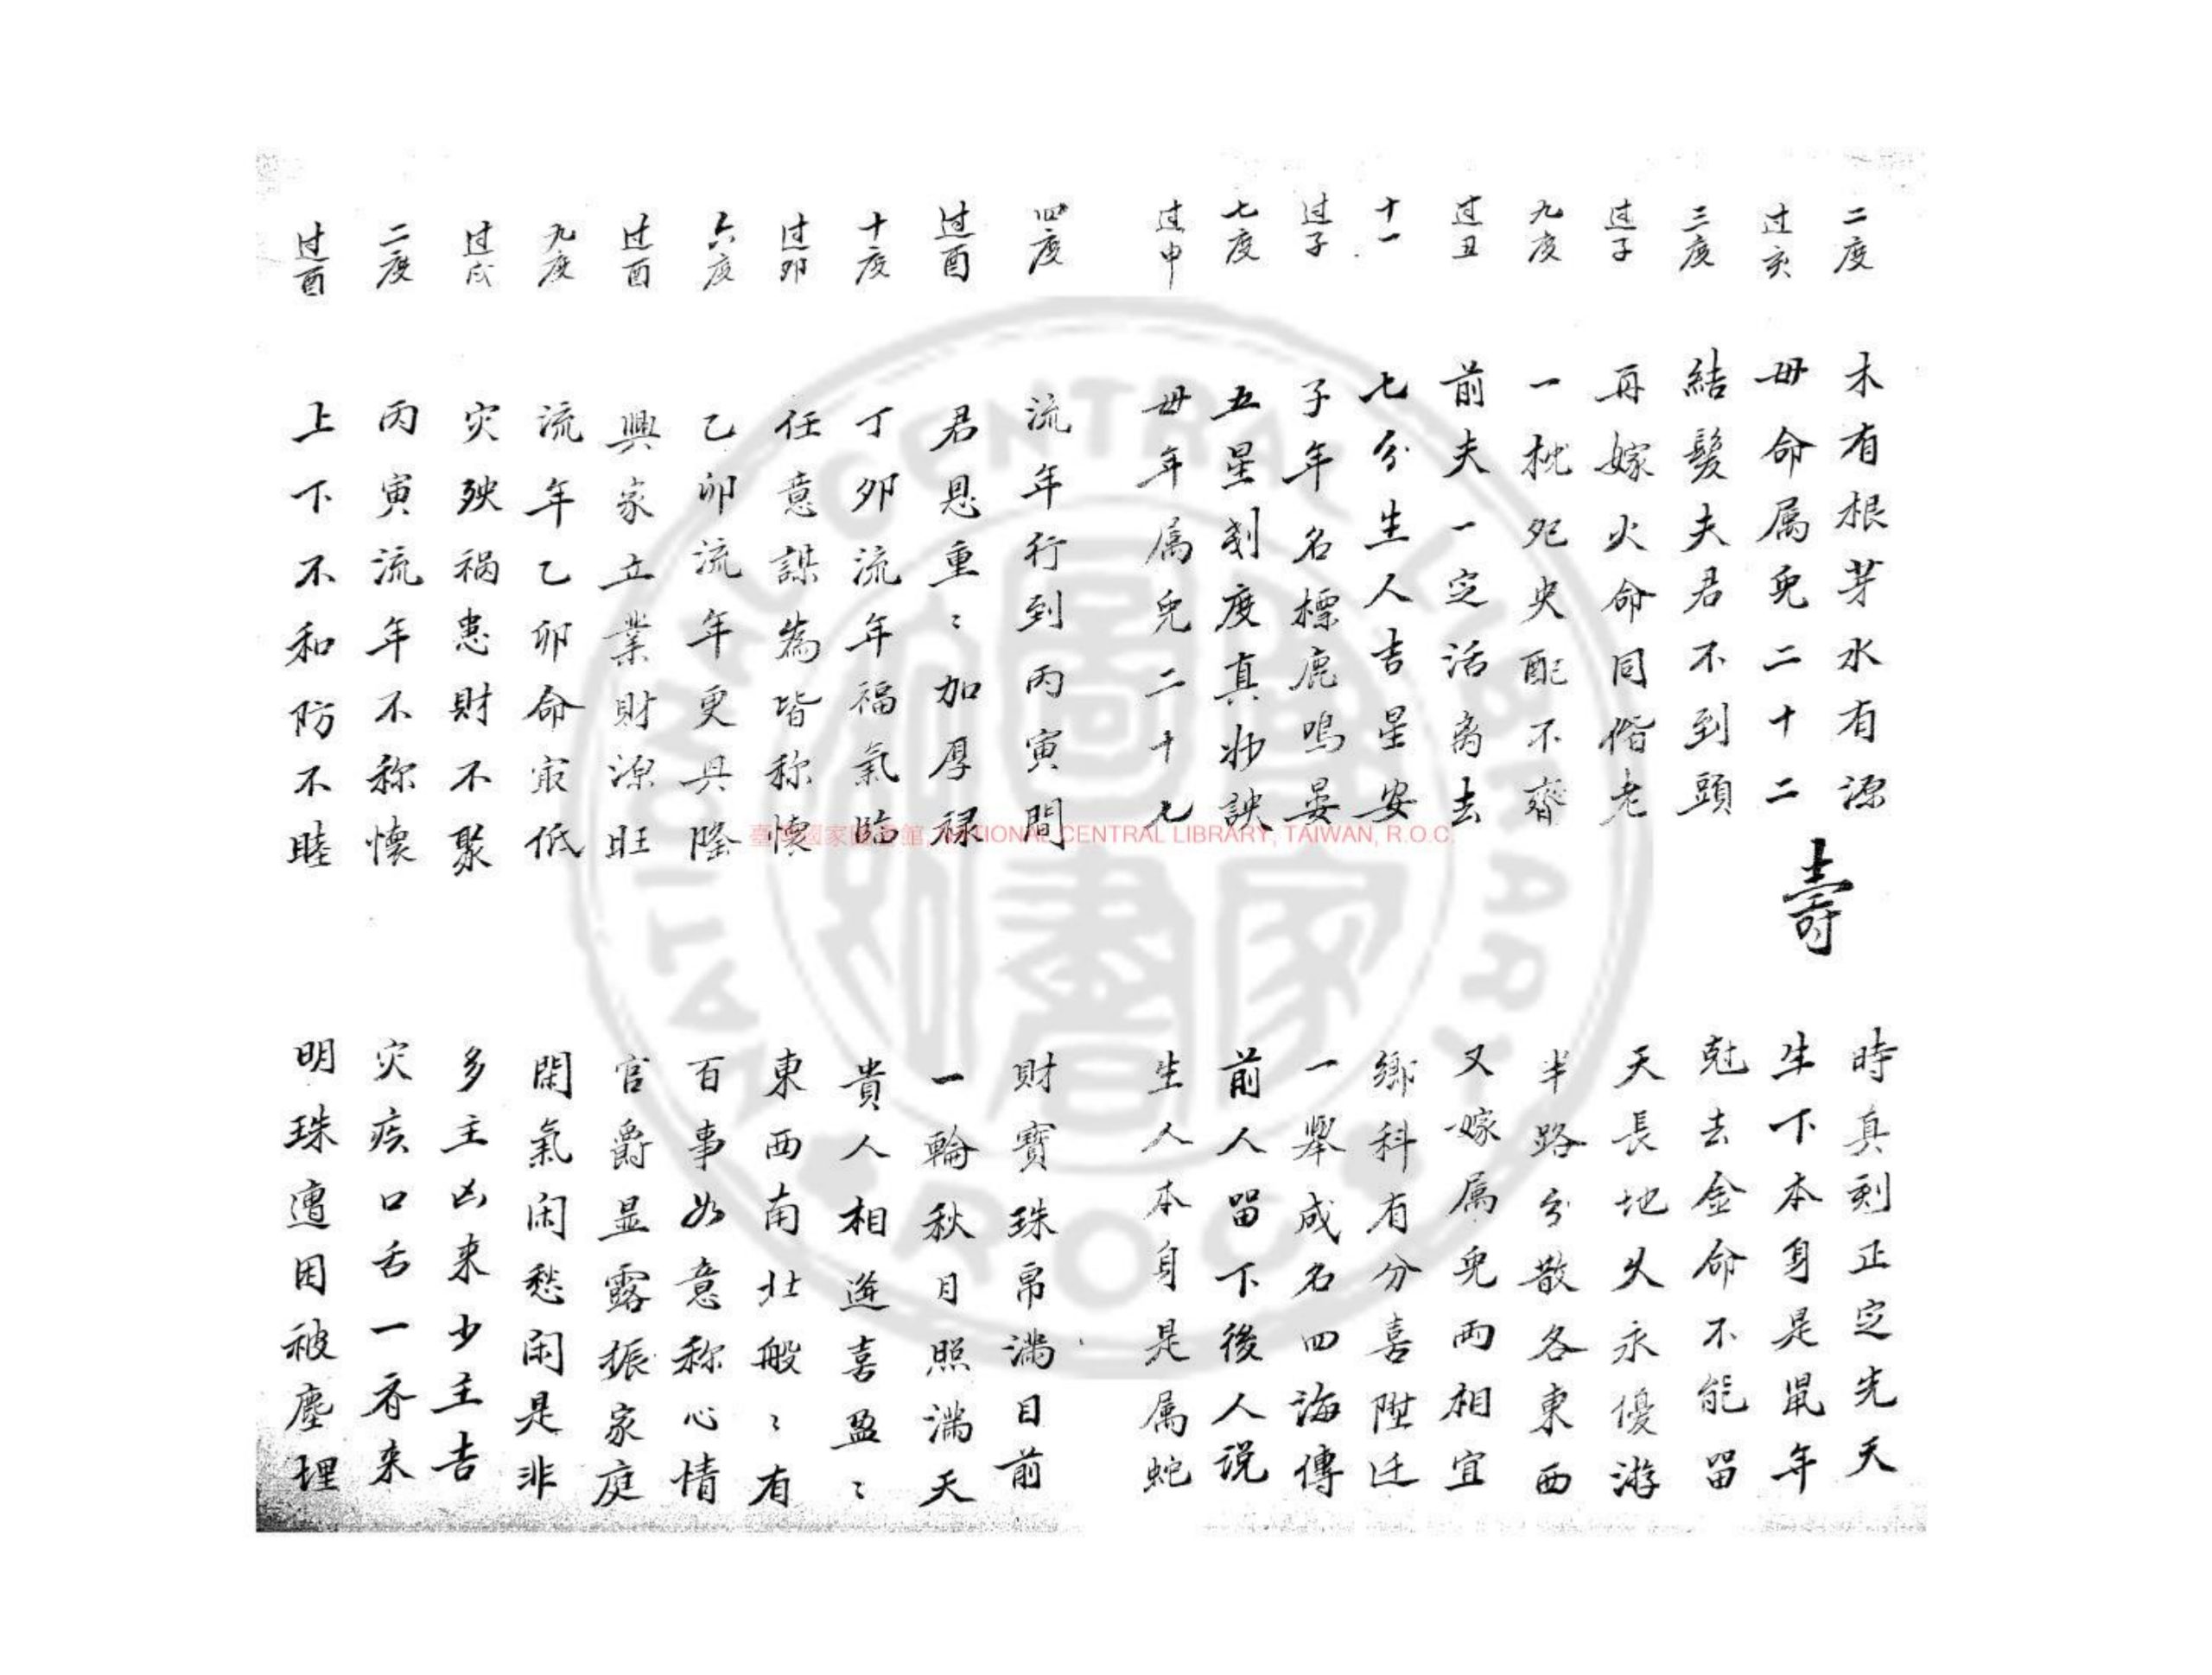 二度 木有根芽水有源 時真刻正定先天
过亥 毋命属兎二十二 壽 生下本身是鼠年
三度 結髮夫君不到頭 尅去金命不能留
过子 再嫁火命同偕老 天長地久永優游
九度 一枕死央配不齊 半路分散各東西
过丑 前夫一定活离去 又嫁属兎兩相宜
十一 七分生人吉星安 鄉科有分喜陞迁
过子 子年名標鹿鳴晏 一舉成名四海傳
七度 五星刻度真妙訣 前人留下後人说
过申 毋年属兎二十七 生人本身是属蛇
四度 流年行到丙寅間 財寶珠帛満目前
过酉 君恩重〻加厚禄 一輪秋月照満天
十度 丁卯流年福氣臨 貴人相逢喜盈〻
过卯 任意謀為皆称懐 東西南北般〻有
六度 乙卯流年更興隆 百事如意称心情
过酉 興家立業財源旺 官爵显露振家庭
九度 流年乙卯命最低 閑氣闲愁闲是非
过戌 灾殃祸患財不聚 多主凶来少主吉
二度 丙寅流年不称懐 灾疾口舌一齐来
过酉 上下不和防不睦 明珠遭困被塵埋
臺灣國家圖書館, NATIONAL CENTRAL LIBRARY, TAIWAN, R.O.C.
NATIONAL CENTRAL LIBRARY
R.O.C.
國家圖書館